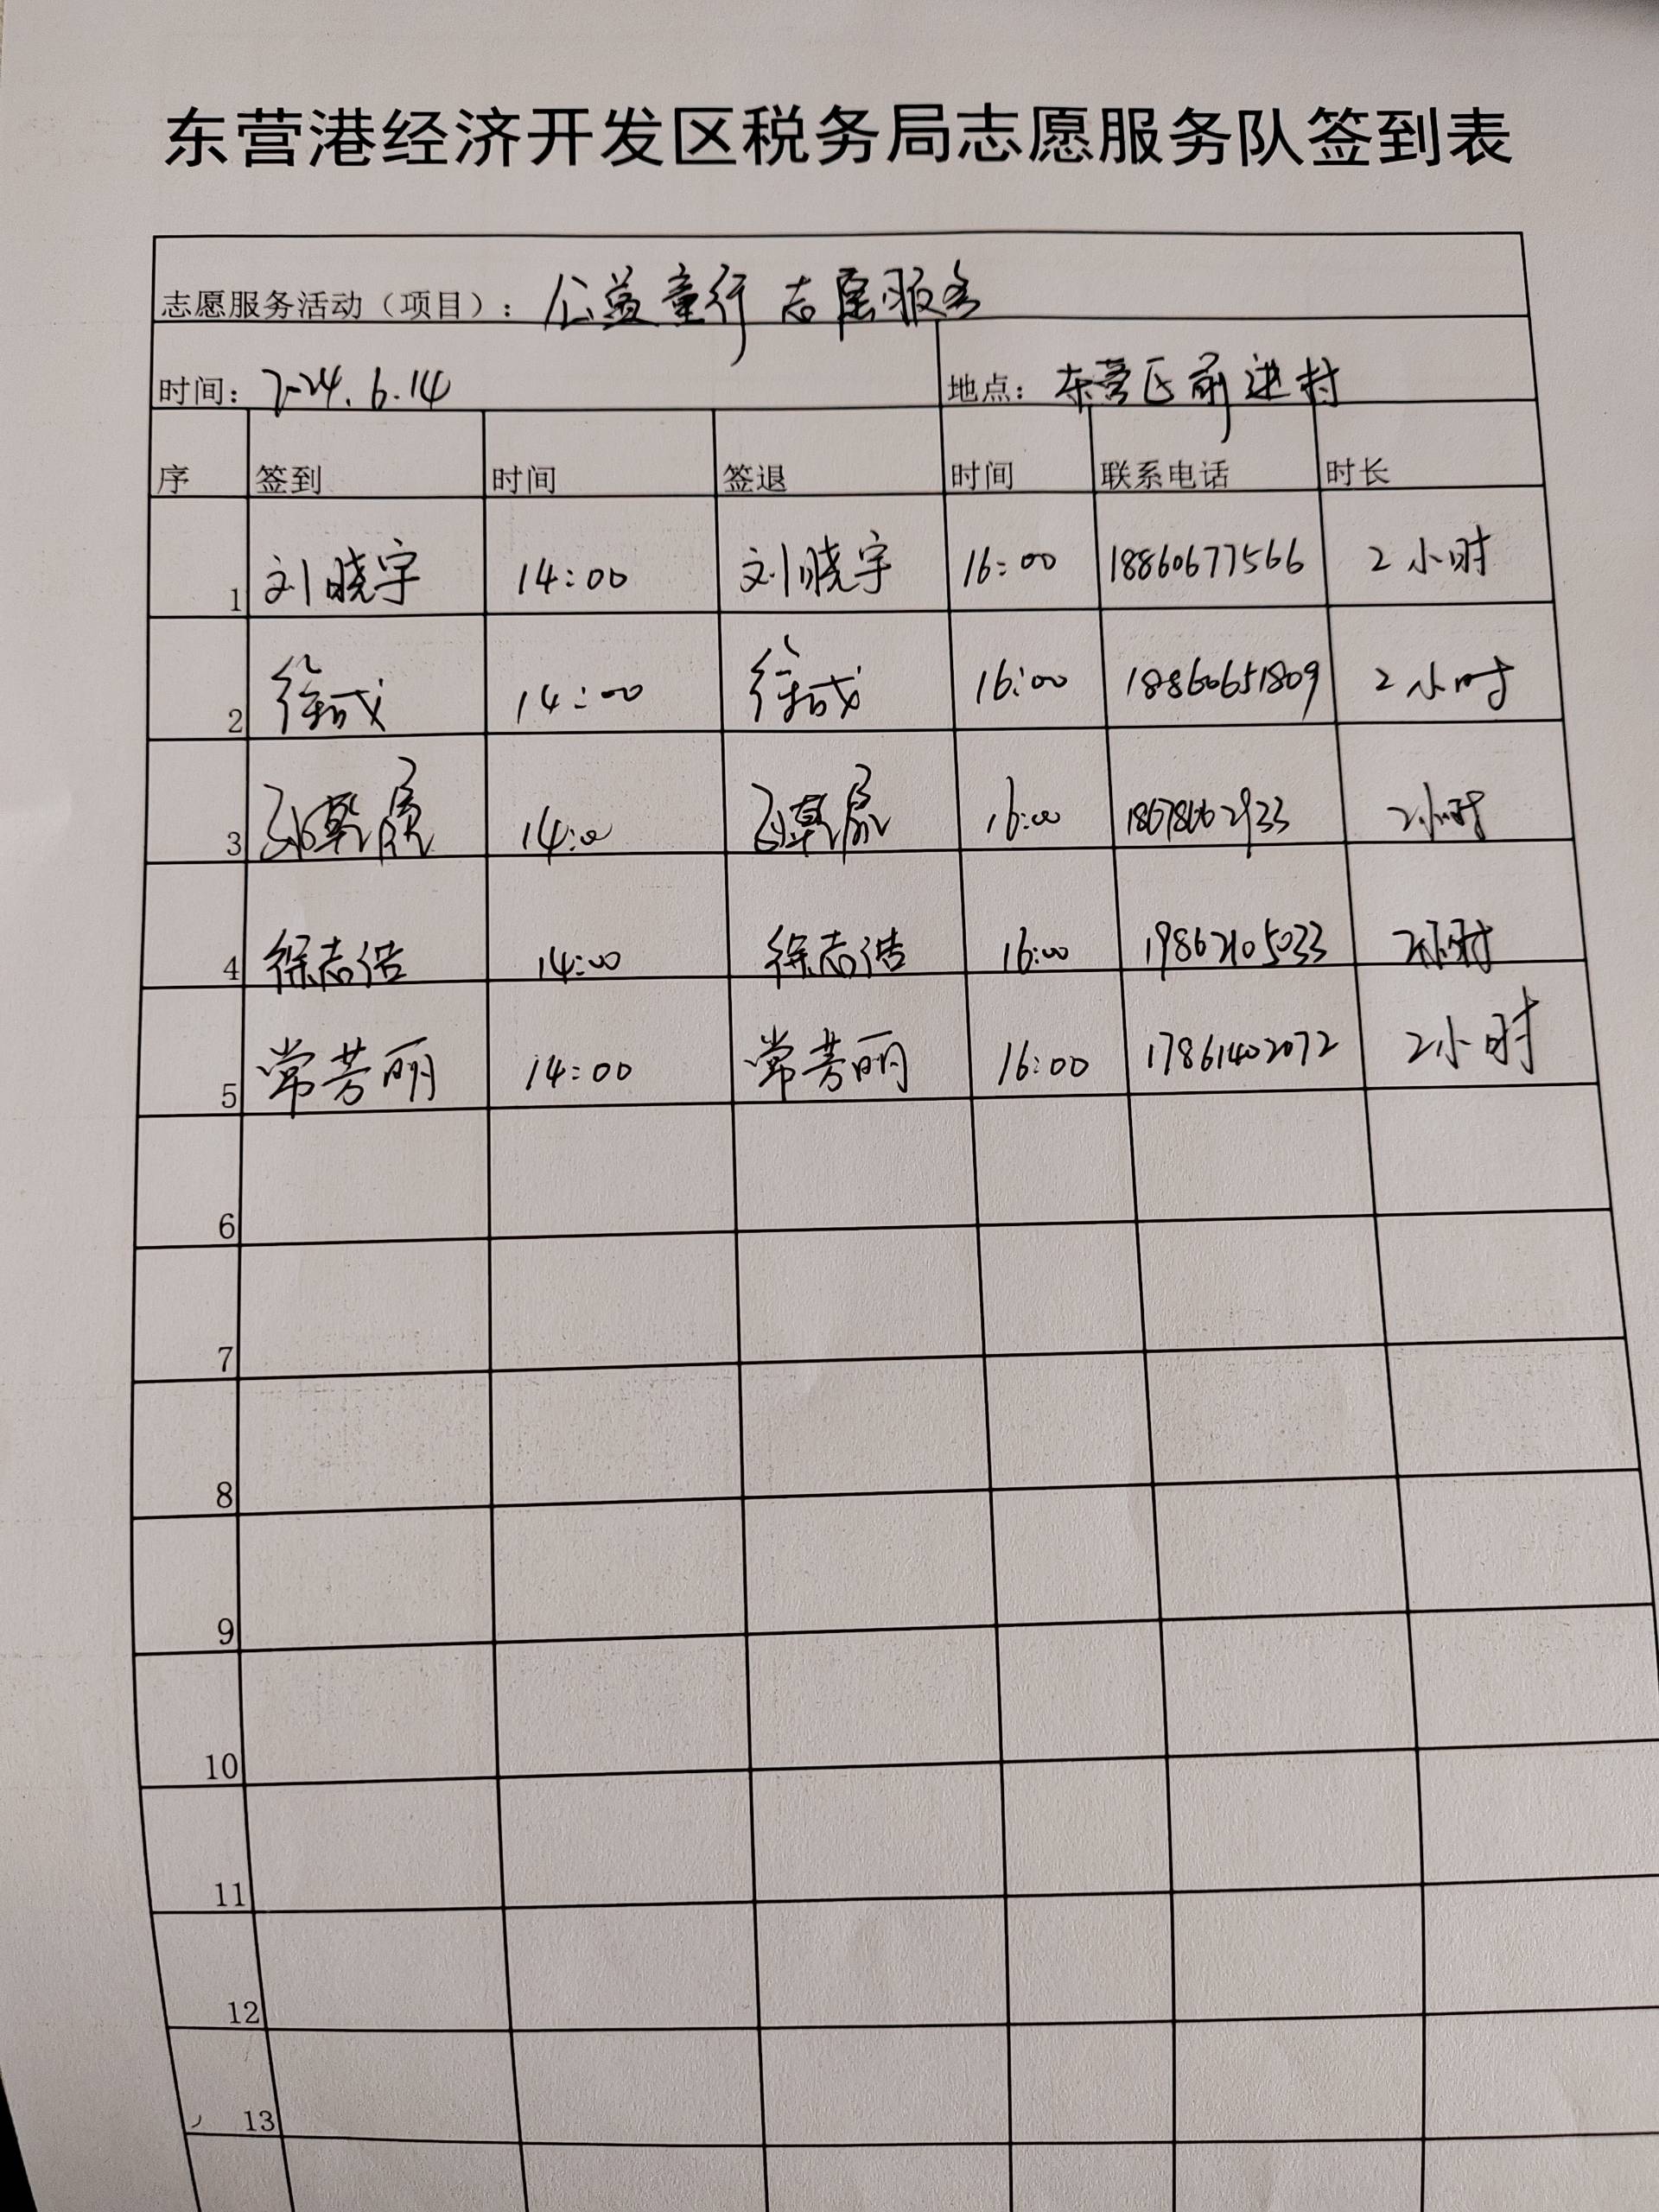 东营港经济开发区税务局志愿服务队签到表
志愿服务活动（项目）：公益童行 志愿服务
时间：2024.6.14 地点：东营区前进村
序 签到 时间 签退 时间 联系电话 时长
1 刘晓宇 14:00 刘晓宇 16:00 18860677566 2小时
2 徐成 14:00 徐成 16:00 18860651809 2小时
3 14:00 16:00 18678662933 2小时
4 徐志浩 14:00 徐志浩 16:00 19862105033 2小时
5 常芳丽 14:00 常芳丽 16:00 17861402072 2小时
6
7
8
9
10
11
12
13